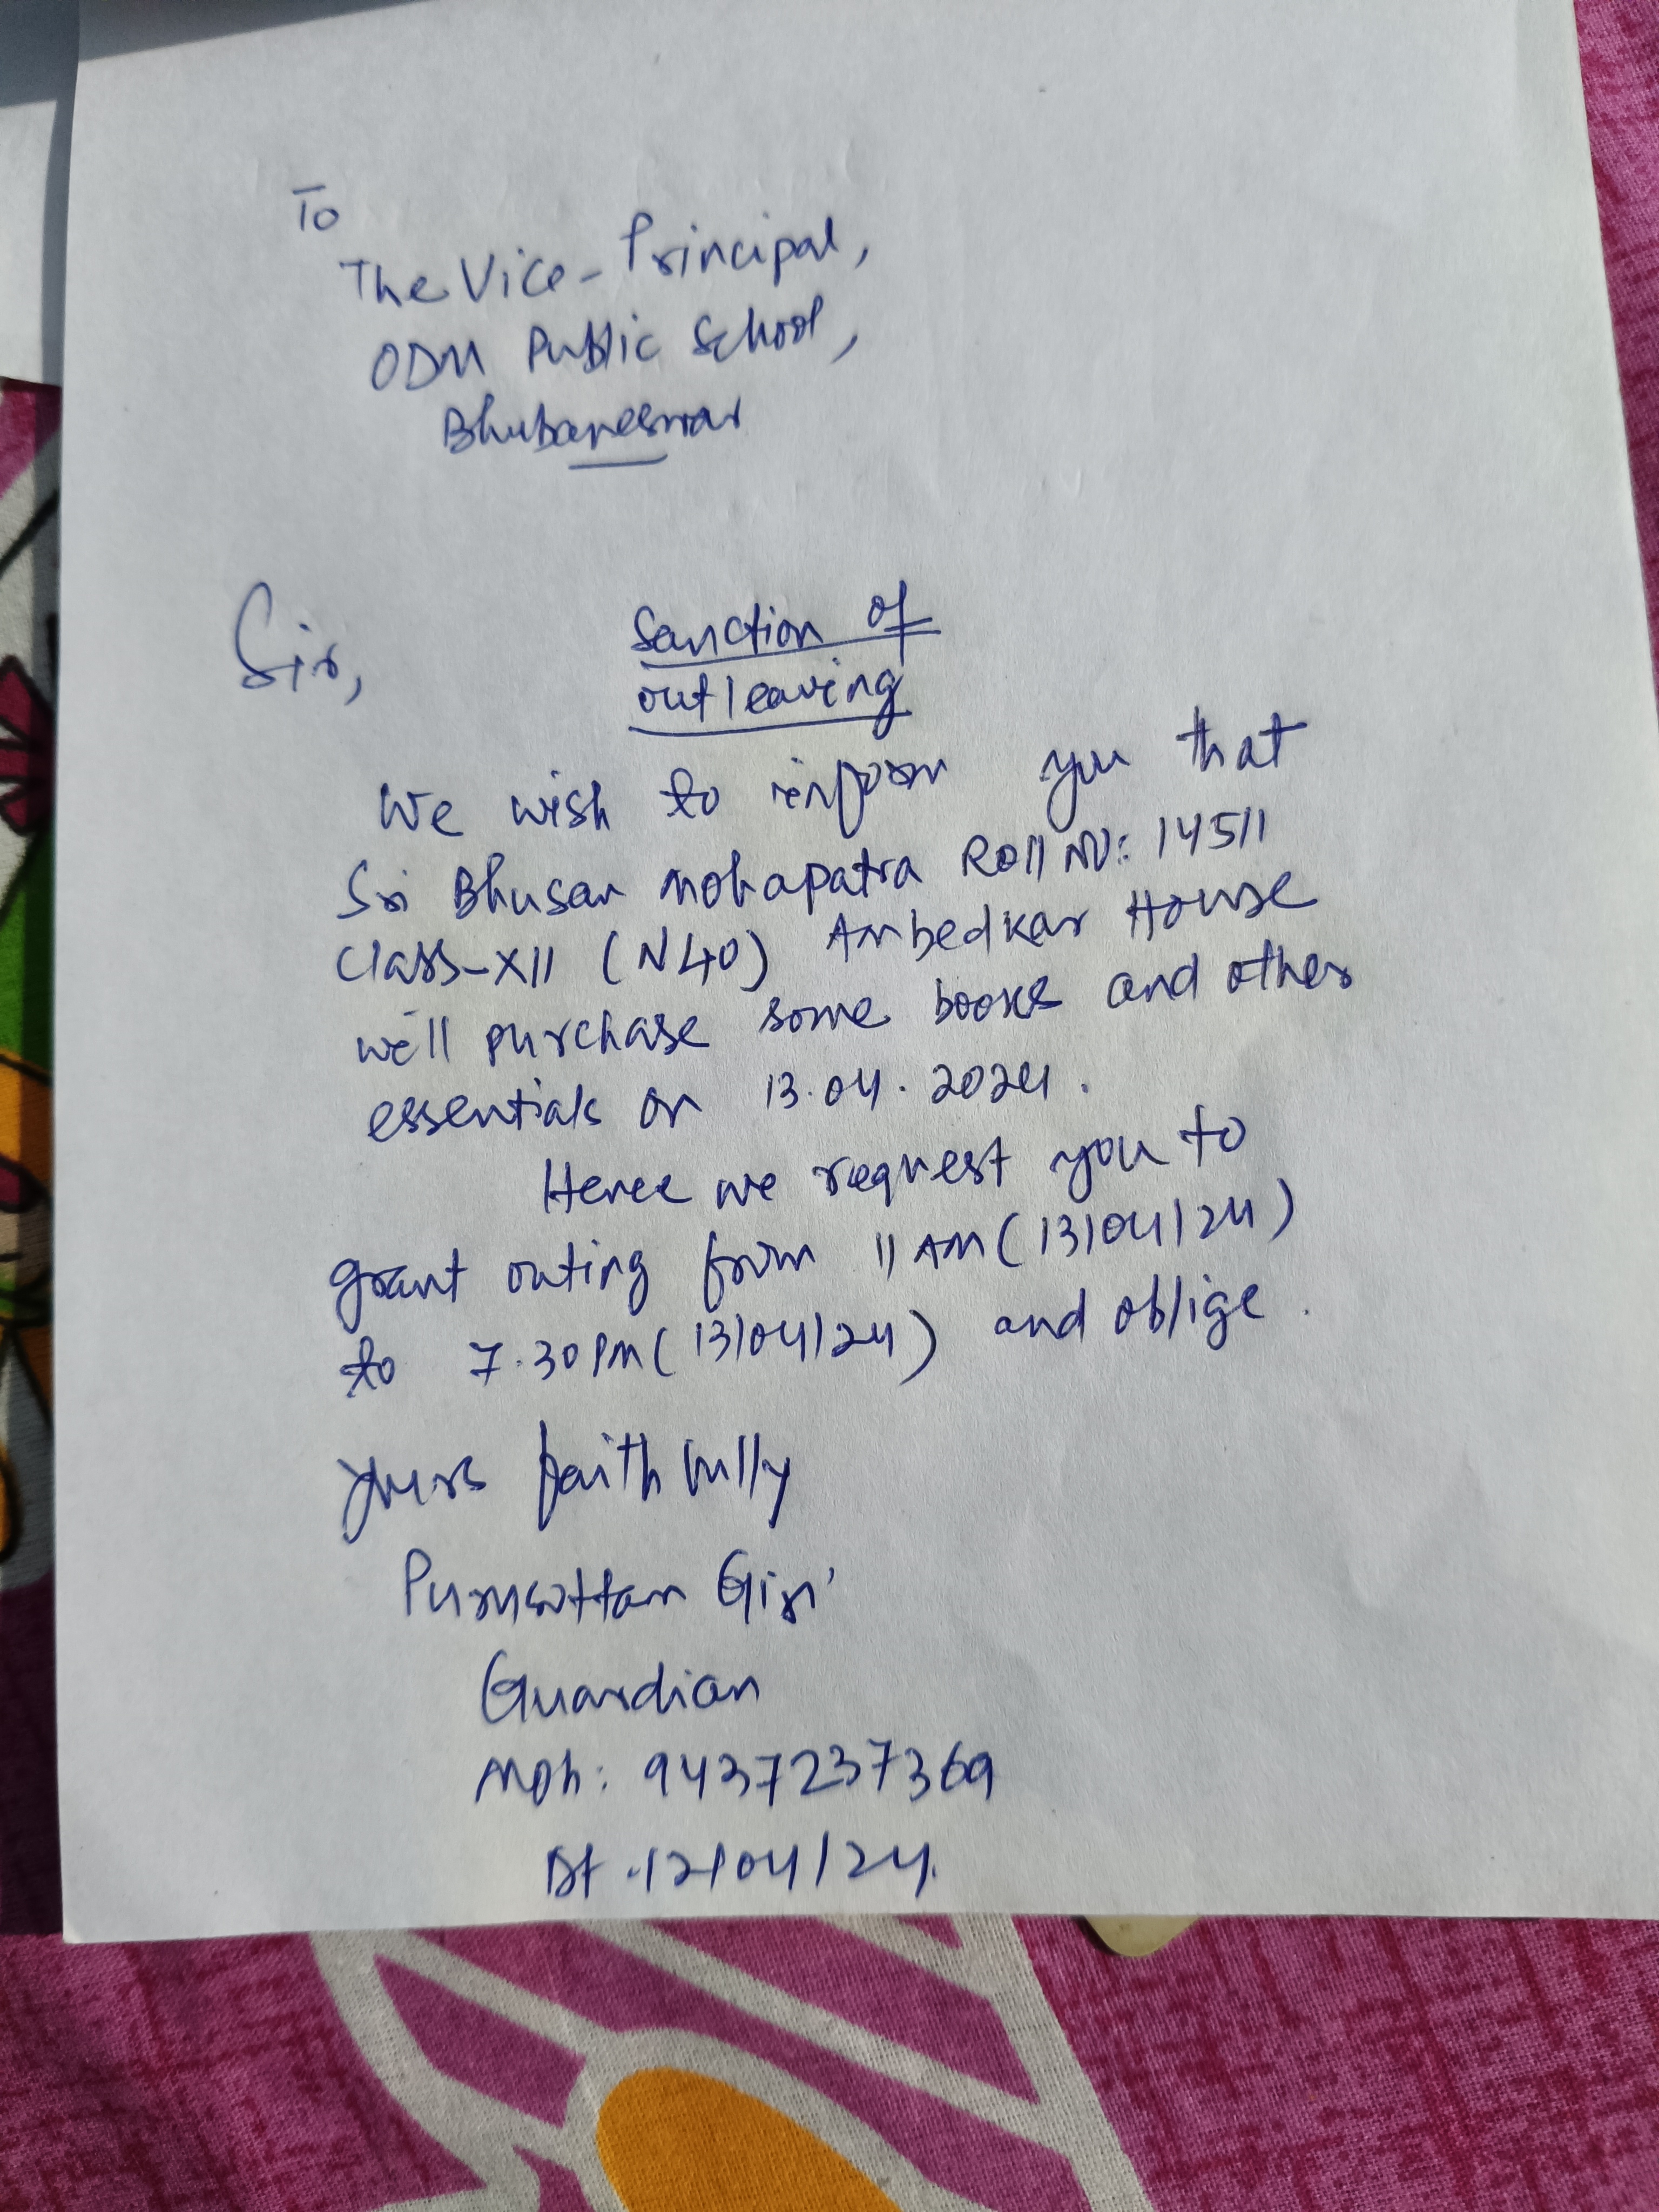 To
The Vice-Principal,
ODM Public School,
Bhubaneswar
Sir,
Sanction of
outleaving
We wish to inform you that
Sri Bhusan Mohapatra Roll No: 14511
Class-XII (N40) Ambedkar House
will purchase some books and other
essentials on 13.04.2024.
Hence we request you to
grant outing from 11 AM (13/04/24)
to 7.30 PM (13/04/24) and oblige.
Yours faithfully
Purusottam Giri
Guardian
Mob: 9437237369
Dt.12/04/24.